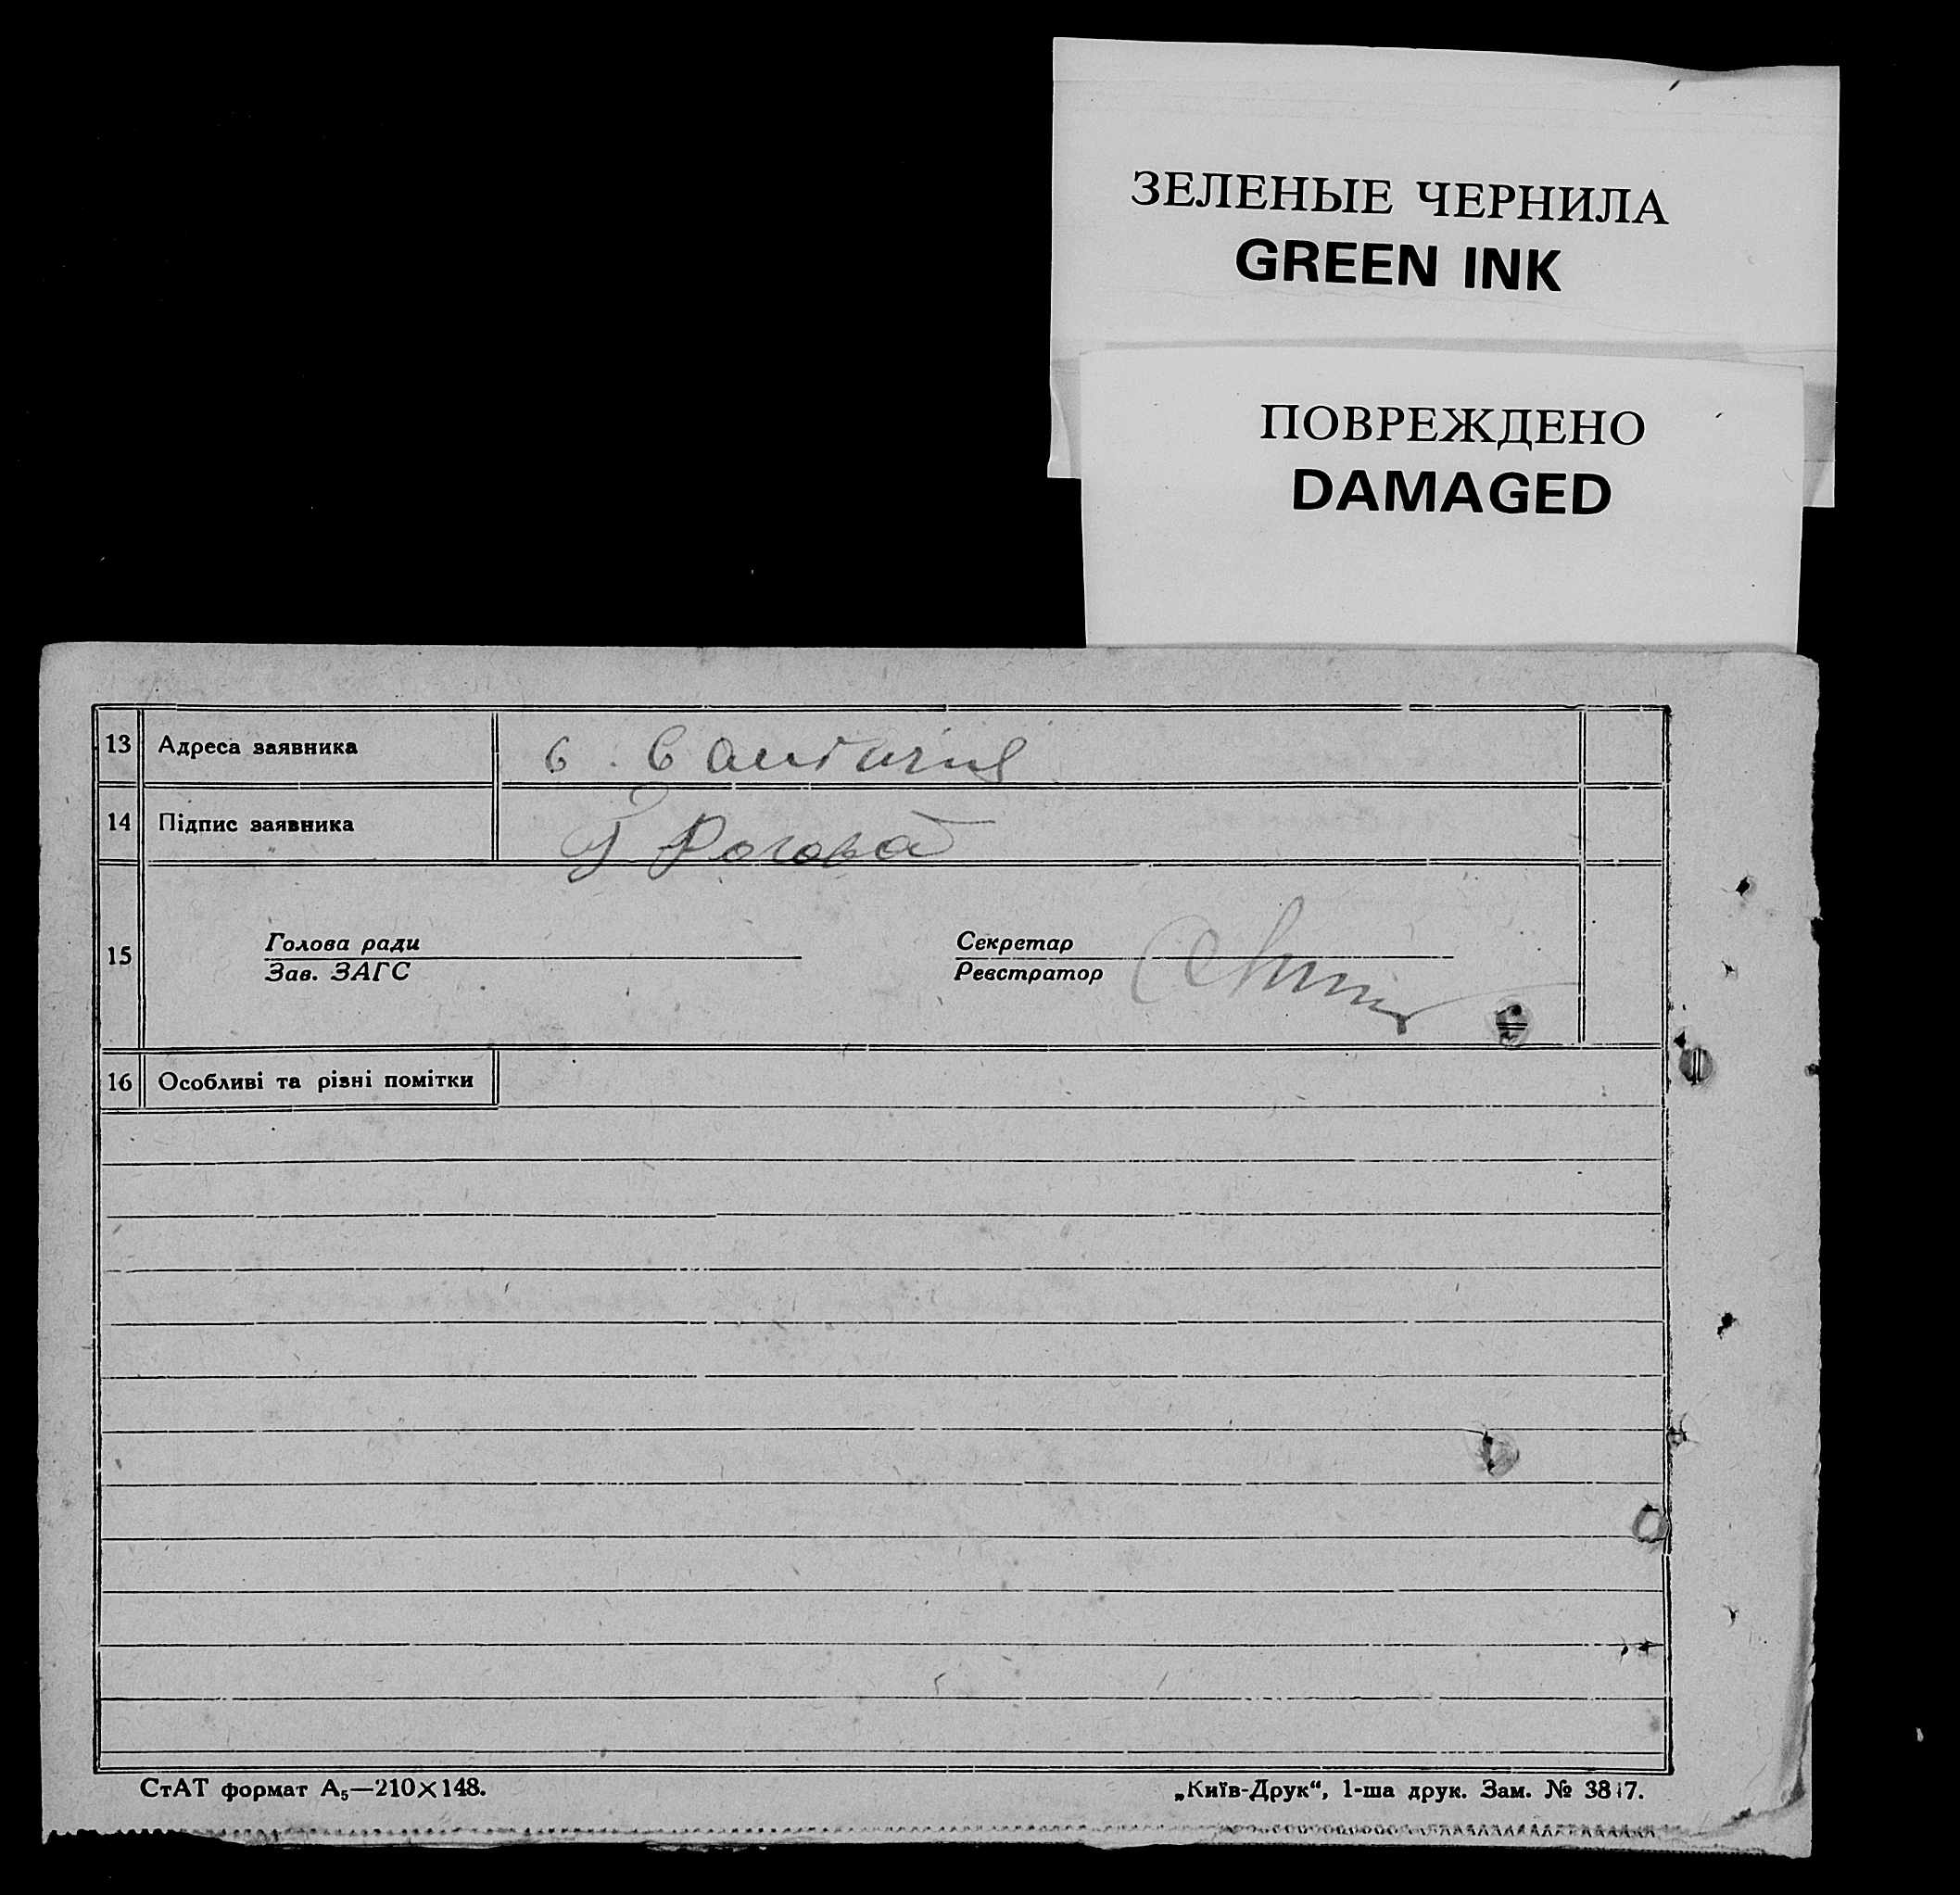 ЗЕЛЕНЫЕ ЧЕРНИЛА
GREEN INK
ПОВРЕЖДЕНО
DAMAGED
13 Адреса заявника с.
14 Підпис заявника Рогова
15
Голова ради Секретар
Зав. ЗАГС Реєстратор
16 Особливі та різні помітки
СтАТ формат А₅—210×148. „Київ-Друк“, 1-ша друк. Зам. №